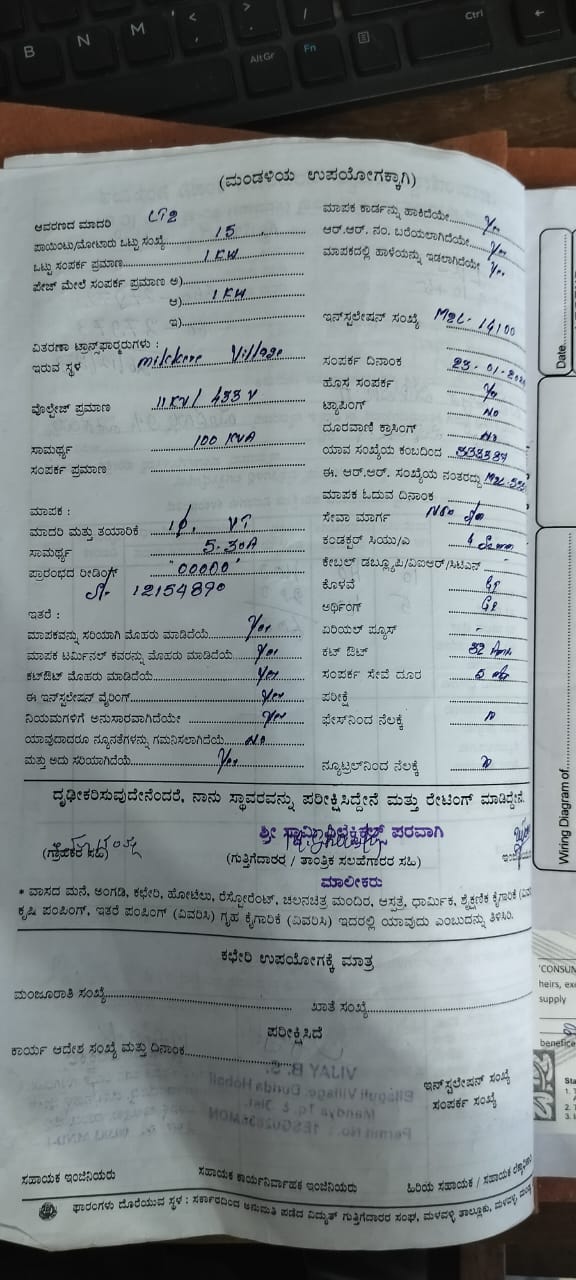 B N M < > / Ctrl ←
AltGr Fn
(ಮಂಡಳಿಯ ಉಪಯೋಗಕ್ಕಾಗಿ)
ಆವರಣದ ಮಾದರಿ LT2
ಪಾಯಿಂಟು/ಮೋಟಾರು ಒಟ್ಟು ಸಂಖ್ಯೆ 15
ಒಟ್ಟು ಸಂಪರ್ಕ ಪ್ರಮಾಣ 1 KW
ಪೇಜ್ ಮೇಲೆ ಸಂಪರ್ಕ ಪ್ರಮಾಣ ಅ)
ಆ) 1 KW
ಇ)
ವಿತರಣಾ ಟ್ರಾನ್ಸ್‌ಫಾರ್ಮರುಗಳು :
ಇರುವ ಸ್ಥಳ Village
ವೊಲ್ಟೇಜ್ ಪ್ರಮಾಣ 11 KV/ 433 V
ಸಾಮರ್ಥ್ಯ 100 KVA
ಸಂಪರ್ಕ ಪ್ರಮಾಣ
ಮಾಪಕ :
ಮಾದರಿ ಮತ್ತು ತಯಾರಿಕೆ 1ϕ, VT
ಸಾಮರ್ಥ್ಯ 5-30A
ಪ್ರಾರಂಭದ ರೀಡಿಂಗ್ "00000"
12154890
ಇತರೆ :
ಮಾಪಕವನ್ನು ಸರಿಯಾಗಿ ಮೊಹರು ಮಾಡಿದೆಯೆ Yes
ಮಾಪಕ ಟರ್ಮಿನಲ್ ಕವರನ್ನು ಮೊಹರು ಮಾಡಿದೆಯೆ Yes
ಕಟ್‌ಔಟ್ ಮೊಹರು ಮಾಡಿದೆಯೆ Yes
ಈ ಇನ್‌ಸ್ಟಲೇಷನ್ ವೈರಿಂಗ್ Yes
ನಿಯಮಗಳಿಗೆ ಅನುಸಾರವಾಗಿದೆಯೇ Yes
ಯಾವುದಾದರೂ ನ್ಯೂನತೆಗಳನ್ನು ಗಮನಿಸಲಾಗಿದೆಯೆ No
ಮತ್ತು ಅದು ಸರಿಯಾಗಿದೆಯೆ Yes
ಮಾಪಕ ಕಾರ್ಡನ್ನು ಹಾಕಿದೆಯೇ Yes
ಆರ್.ಆರ್. ನಂ. ಬರೆಯಲಾಗಿದೆಯೇ Yes
ಮಾಪಕದಲ್ಲಿ ಹಾಳೆಯನ್ನು ಇಡಲಾಗಿದೆಯೇ Yes
ಇನ್‌ಸ್ಟಲೇಷನ್ ಸಂಖ್ಯೆ M2L-14100
ಸಂಪರ್ಕ ದಿನಾಂಕ 23-01-
ಹೊಸ ಸಂಪರ್ಕ Yes
ಟ್ಯಾಪಿಂಗ್ No
ದೂರವಾಣಿ ಕ್ರಾಸಿಂಗ್ No
ಯಾವ ಸಂಖ್ಯೆಯ ಕಂಬದಿಂದ
ಈ. ಆರ್.ಆರ್. ಸಂಖ್ಯೆಯ ನಂತರದ್ದು
ಮಾಪಕ ಓದುವ ದಿನಾಂಕ
ಸೇವಾ ಮಾರ್ಗ
ಕಂಡಕ್ಟರ್ ಸಿಯು/ಎ
ಕೇಬಲ್ ಡಬ್ಲ್ಯೂಪಿ/ವಿಐಆರ್/ಸಿಟಿಎಸ್ -
ಕೊಳವೆ GI
ಅರ್ಥಿಂಗ್ GI
ಏರಿಯಲ್ ಫ್ಯೂಸ್ -
ಕಟ್ ಔಟ್ 32
ಸಂಪರ್ಕ ಸೇವೆ ದೂರ 5
ಪರೀಕ್ಷೆ
ಫೇಸ್‌ನಿಂದ ನೆಲಕ್ಕೆ
ನ್ಯೂಟ್ರಲ್‌ನಿಂದ ನೆಲಕ್ಕೆ
ದೃಢೀಕರಿಸುವುದೇನೆಂದರೆ, ನಾನು ಸ್ಥಾವರವನ್ನು ಪರೀಕ್ಷಿಸಿದ್ದೇನೆ ಮತ್ತು ರೇಟಿಂಗ್ ಮಾಡಿದ್ದೇನೆ.
ಶ್ರೀ ಸ್ವಾಮಿ ಎಲೆಕ್ಟ್ರಿಕಲ್ಸ್ ಪರವಾಗಿ
(ಗ್ರಾಹಕರ ಸಹಿ) (ಗುತ್ತಿಗೆದಾರರ / ತಾಂತ್ರಿಕ ಸಲಹೆಗಾರರ ಸಹಿ)
ಮಾಲೀಕರು
* ವಾಸದ ಮನೆ, ಅಂಗಡಿ, ಕಛೇರಿ, ಹೋಟೆಲು, ರೆಸ್ಟೋರೆಂಟ್, ಚಲನಚಿತ್ರ ಮಂದಿರ, ಆಸ್ಪತ್ರೆ, ಧಾರ್ಮಿಕ, ಶೈಕ್ಷಣಿಕ ಕೈಗಾರಿಕೆ
ಕೃಷಿ ಪಂಪಿಂಗ್, ಇತರೆ ಪಂಪಿಂಗ್ (ವಿವರಿಸಿ) ಗೃಹ ಕೈಗಾರಿಕೆ (ವಿವರಿಸಿ) ಇದರಲ್ಲಿ ಯಾವುದು ಎಂಬುದನ್ನು ತಿಳಿಸಿರಿ.
ಕಛೇರಿ ಉಪಯೋಗಕ್ಕೆ ಮಾತ್ರ
ಮಂಜೂರಾತಿ ಸಂಖ್ಯೆ ಖಾತೆ ಸಂಖ್ಯೆ
ಪರೀಕ್ಷಿಸಿದೆ
ಕಾರ್ಯ ಆದೇಶ ಸಂಖ್ಯೆ ಮತ್ತು ದಿನಾಂಕ
ಇನ್‌ಸ್ಟಲೇಷನ್ ಸಂಖ್ಯೆ
ಸಂಪರ್ಕ ಸಂಖ್ಯೆ
ಸಹಾಯಕ ಇಂಜಿನಿಯರು ಸಹಾಯಕ ಕಾರ್ಯನಿರ್ವಾಹಕ ಇಂಜಿನಿಯರು ಹಿರಿಯ ಸಹಾಯಕ / ಸಹಾಯಕ
ಫಾರಂಗಳು ದೊರೆಯುವ ಸ್ಥಳ : ಸರ್ಕಾರದಿಂದ ಅನುಮತಿ ಪಡೆದ ವಿದ್ಯುತ್ ಗುತ್ತಿಗೆದಾರರ ಸಂಘ, ಮಳವಳ್ಳಿ ತಾಲ್ಲೂಕು, ಮಳವಳ್ಳಿ,
Date
Wiring Diagram of
'CONSUM
heirs, exe
supply
benefice